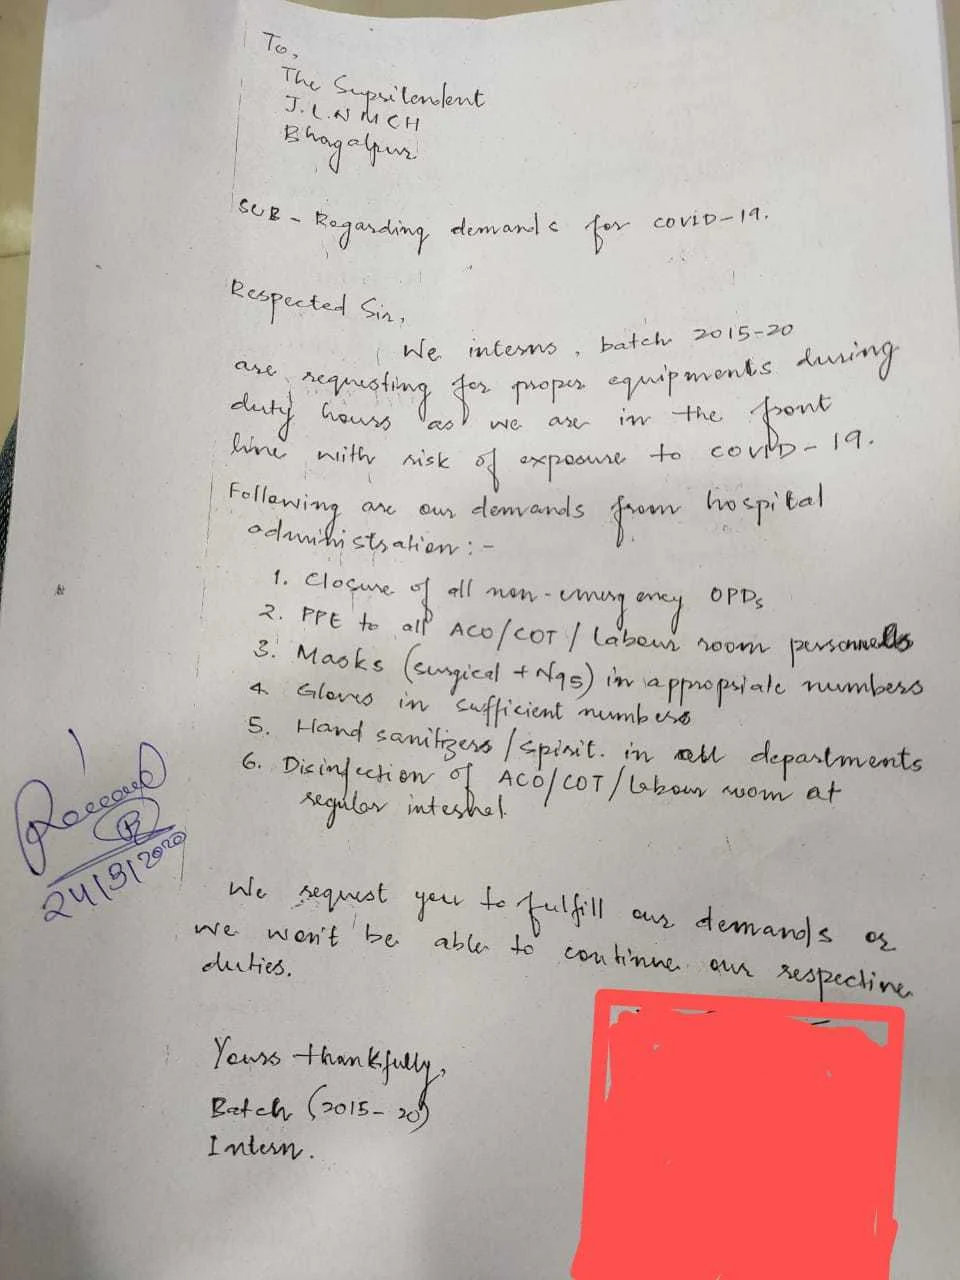 To,
The Supsilendent
J.L.N MCH
Bhagalpur
SUB - Regarding demands for COVID-19.
Respected Sir,
We interns, batch 2015-20
are requesting for proper equipments during
duty hours as we are in the front
line with risk of exposure to COVID-19.
Following are our demands from hospital
administration:-
1. Closure of all non-emergency OPDs
2. PPE to all ACO/COT/Labour room personnels
3. Masks (surgical + N95) in appropriate numbers
4. Gloves in sufficient numbers
5. Hand sanitizers/spirit. in all departments
6. Disinfection of ACO/COT/Labour room at
regular interval.
Received
24/3/2020
We request you to fulfill our demands or
we won't be able to continue our respective
duties.
Yours thankfully,
Batch (2015-20)
Intern.